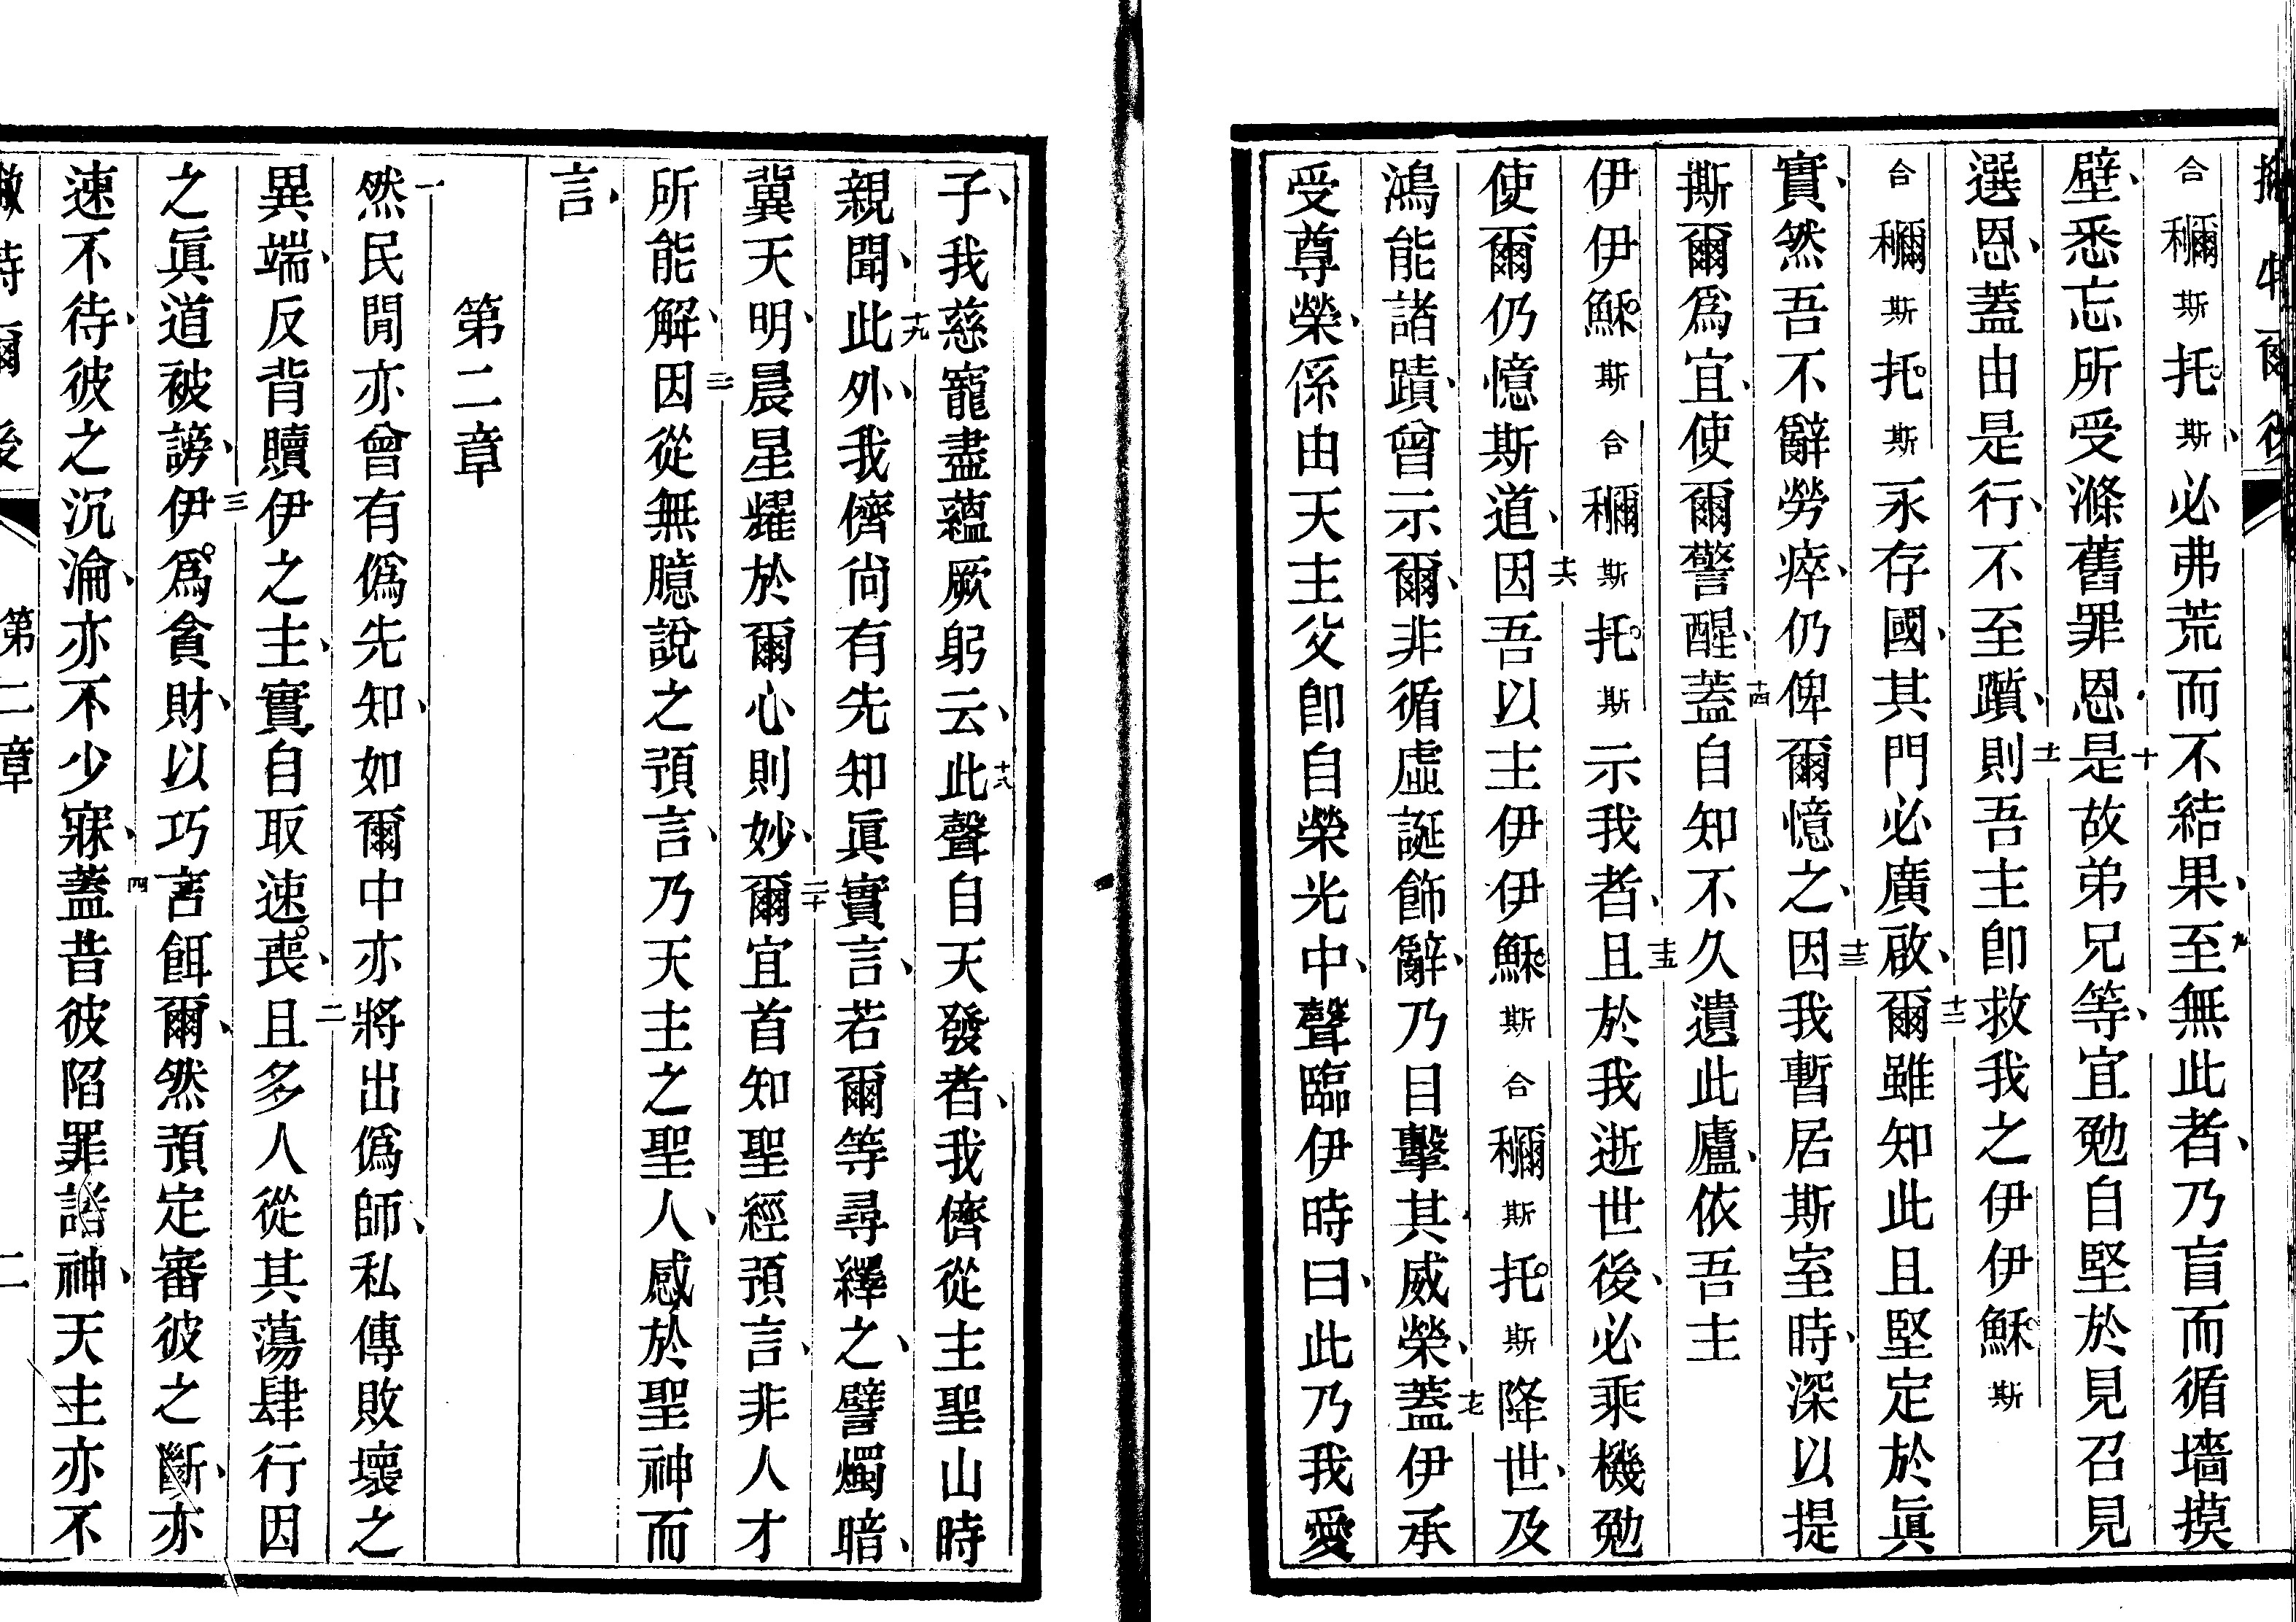 合穪斯托斯必弗荒而不結果至無此者乃盲而循墻摸
壁悉忘所受滌舊罪恩是故弟兄等宜勉自堅於見召見
選恩蓋由是行不至躓則吾主卽救我之伊伊穌斯
合穪斯托斯永存國其門必廣啟爾雖知此且堅定於眞
實然吾不辭勞瘁仍俾爾憶之因我暫居斯室時深以提
撕爾爲宜使爾警醒蓋自知不久遺此廬依吾主
伊伊穌斯合穪斯托斯示我者且於我逝世後必乘機勉
使爾仍憶斯道因吾以主伊伊穌斯合穪斯托斯降世及
鴻能諸蹟曾示爾非循虛誕飾辭乃目擊其威榮蓋伊承
受尊榮係由天主父卽自榮光中聲臨伊時曰此乃我愛
子我慈寵盡蘊厥躬云此聲自天發者我儕從主聖山時
親聞此外我儕尚有先知眞實言若爾等尋繹之譬燭暗
冀天明晨星耀於爾心則妙爾宜首知聖經預言非人才
所能解因從無臆說之預言乃天主之聖人感於聖神而
言
第二章
然民間亦曾有僞先知如爾中亦將出僞師私傳敗壞之
異端反背贖伊之主實自取速喪且多人從其蕩肆行因
之眞道被謗伊爲貪財以巧言餌爾然預定審彼之斷亦
速不待彼之沉淪亦不少寐蓋昔彼陷罪諸神天主亦不
第二章 二